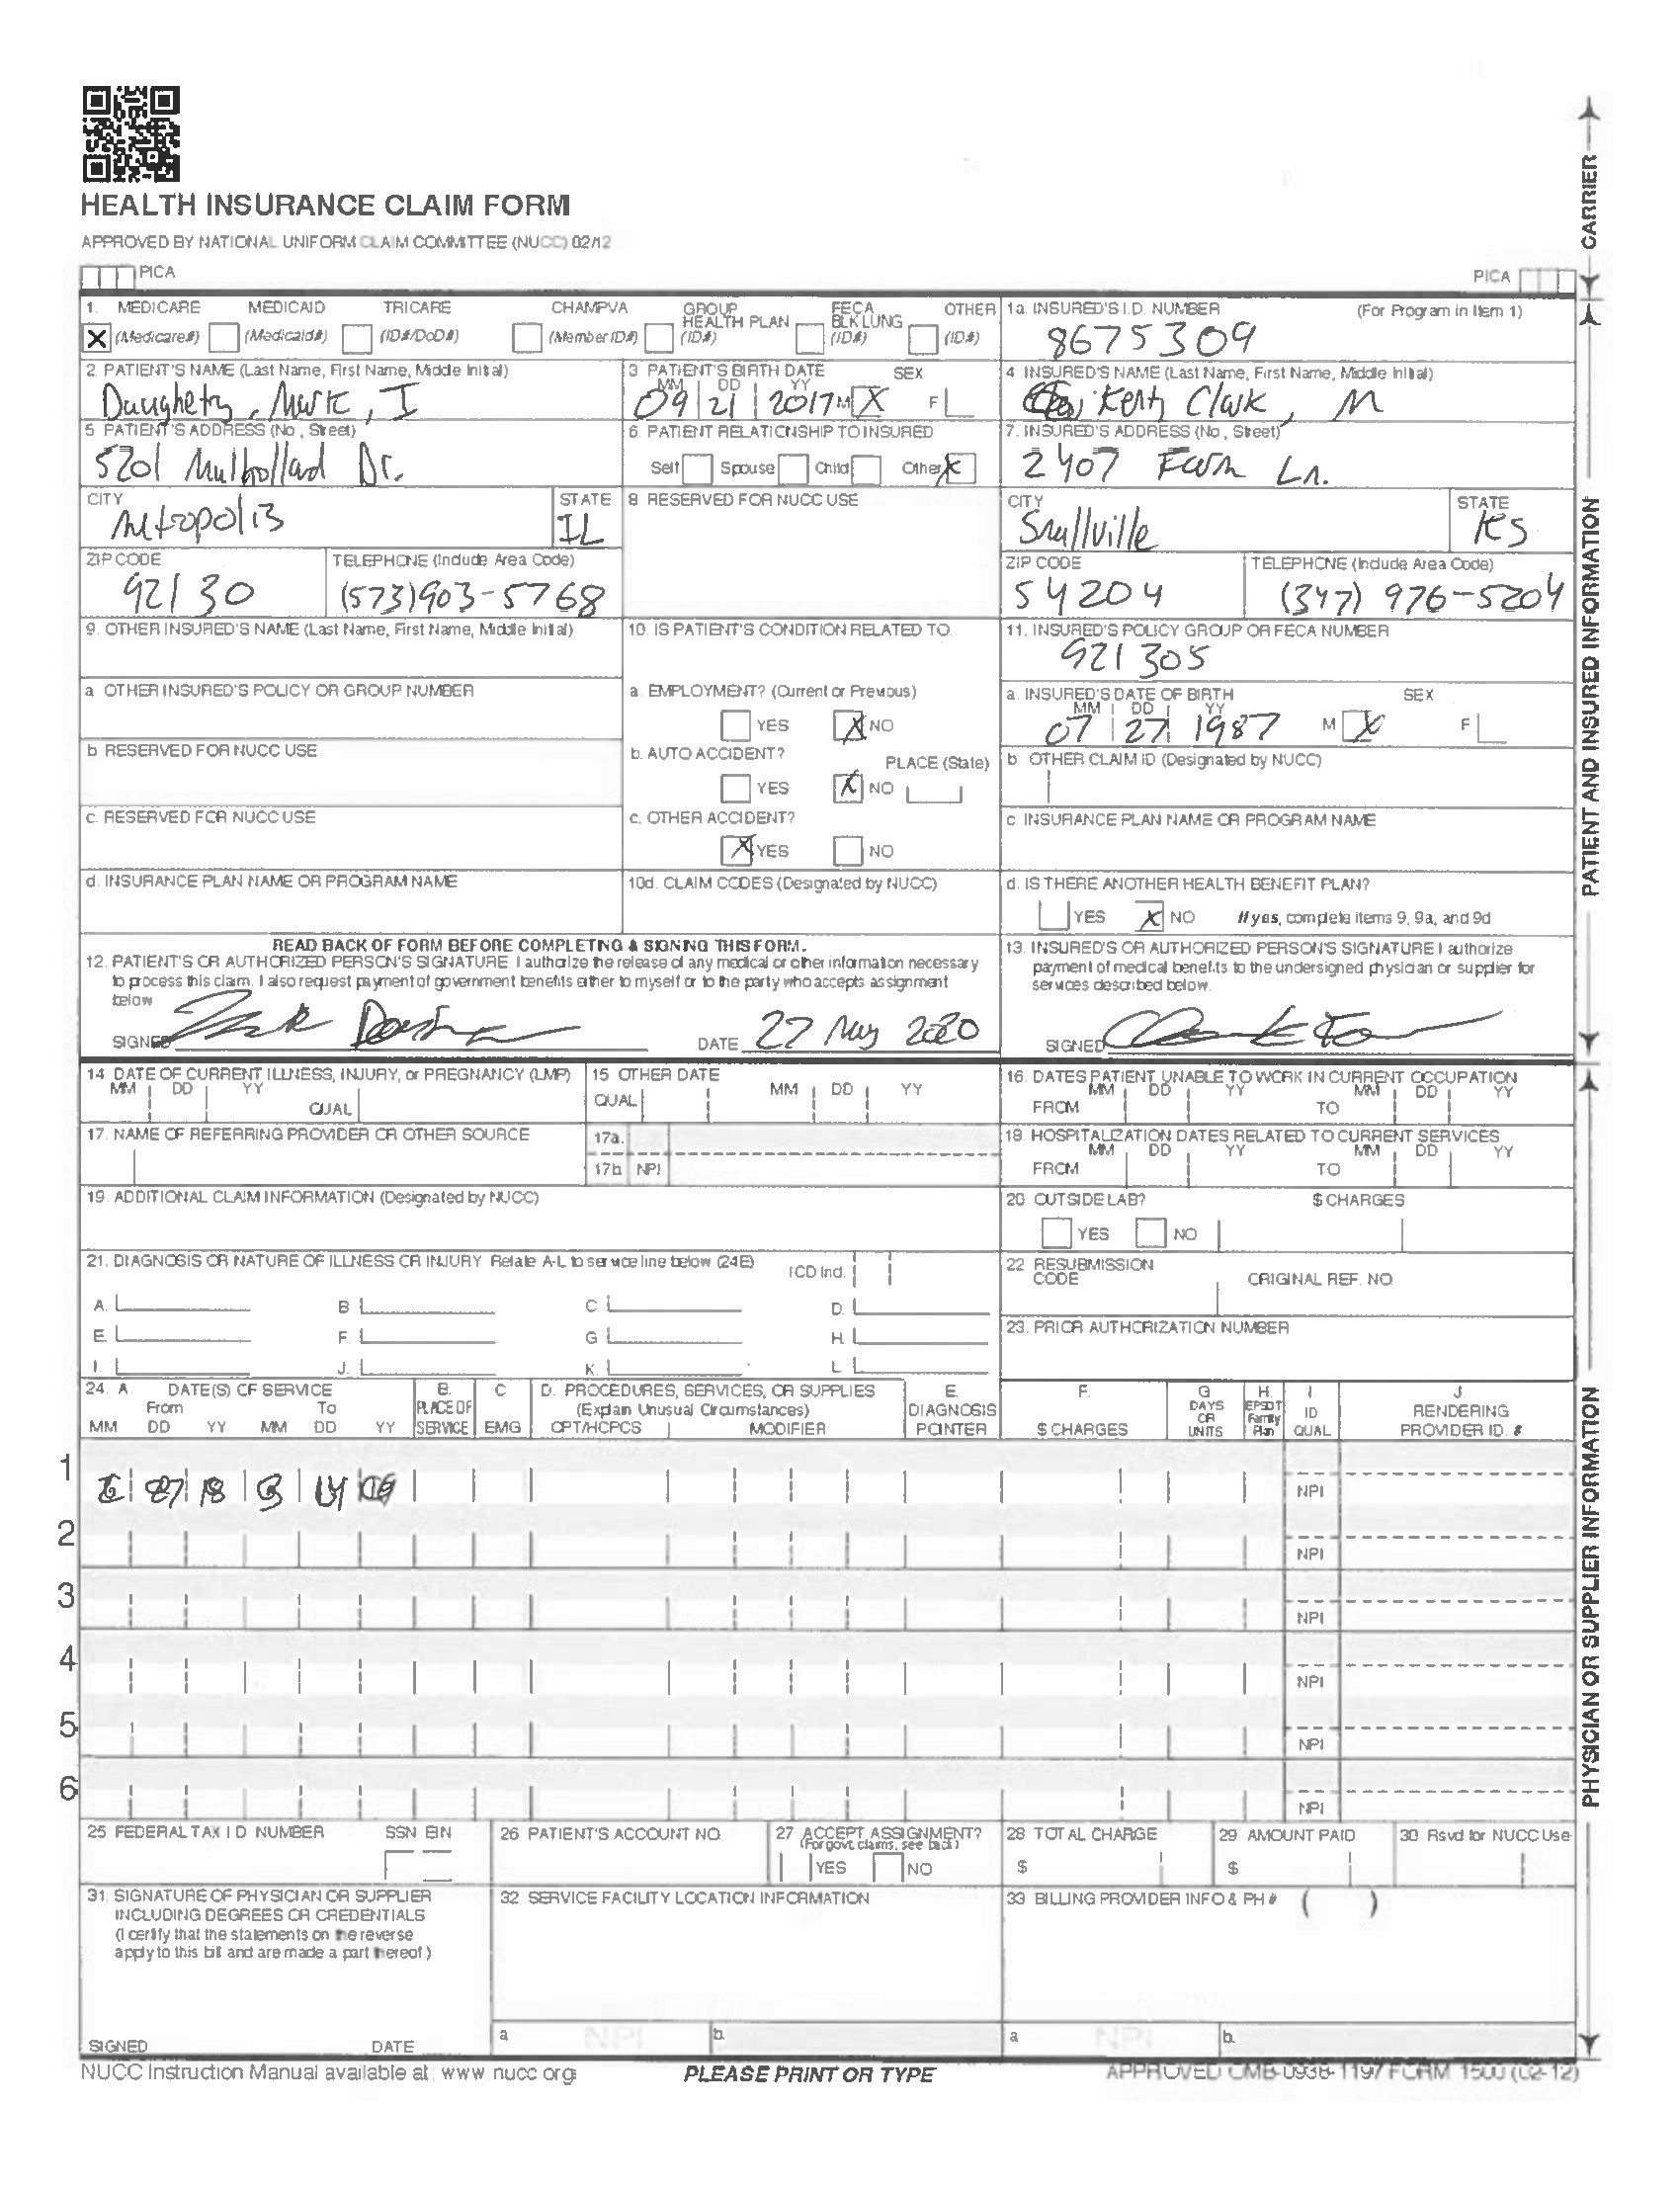 HEALTH INSURANCE CLAIM FORM
APPROVED BY NATIONAL UNIFORM CLAIM COMMITTEE (NUCC) 02/12
PICA
PICA
CARRIER
1. MEDICARE MEDICAID TRICARE CHAMPVA GROUP HEALTH PLAN FECA BLK LUNG OTHER
X (Medicare#) (Medicaid#) (ID#/DoD#) (Member ID#) (ID#) (ID#) (ID#)
1a. INSURED'S I.D. NUMBER (For Program in Item 1)
8675309
2. PATIENT'S NAME (Last Name, First Name, Middle Initial)
Daughety, Mark, I
3. PATIENT'S BIRTH DATE SEX
MM DD YY
09 21 2017 M X F
4. INSURED'S NAME (Last Name, First Name, Middle Initial)
Kent, Clark, M
5. PATIENT'S ADDRESS (No., Street)
5201 Mulholland Dr.
6. PATIENT RELATIONSHIP TO INSURED
Self Spouse Child Other X
7. INSURED'S ADDRESS (No., Street)
2407 Farm Ln.
CITY
Metropolis
STATE
IL
8. RESERVED FOR NUCC USE
CITY
Smallville
STATE
KS
ZIP CODE
92130
TELEPHONE (Include Area Code)
(573)903-5768
ZIP CODE
54204
TELEPHONE (Include Area Code)
(347) 976-5204
9. OTHER INSURED'S NAME (Last Name, First Name, Middle Initial)
10. IS PATIENT'S CONDITION RELATED TO:
11. INSURED'S POLICY GROUP OR FECA NUMBER
921305
a. OTHER INSURED'S POLICY OR GROUP NUMBER
a. EMPLOYMENT? (Current or Previous)
YES X NO
a. INSURED'S DATE OF BIRTH SEX
MM DD YY
07 27 1987 M X F
b. RESERVED FOR NUCC USE
b. AUTO ACCIDENT? PLACE (State)
YES X NO
b. OTHER CLAIM ID (Designated by NUCC)
c. RESERVED FOR NUCC USE
c. OTHER ACCIDENT?
X YES NO
c. INSURANCE PLAN NAME OR PROGRAM NAME
d. INSURANCE PLAN NAME OR PROGRAM NAME
10d. CLAIM CODES (Designated by NUCC)
d. IS THERE ANOTHER HEALTH BENEFIT PLAN?
YES X NO If yes, complete items 9, 9a, and 9d
READ BACK OF FORM BEFORE COMPLETING & SIGNING THIS FORM.
12. PATIENT'S OR AUTHORIZED PERSON'S SIGNATURE I authorize the release of any medical or other information necessary
to process this claim. I also request payment of government benefits either to myself or to the party who accepts assignment
below
SIGNED DATE 22 May 2020
13. INSURED'S OR AUTHORIZED PERSON'S SIGNATURE I authorize
payment of medical benefits to the undersigned physician or supplier for
services described below.
SIGNED
PATIENT AND INSURED INFORMATION
14. DATE OF CURRENT ILLNESS, INJURY, or PREGNANCY (LMP)
MM DD YY QUAL
15. OTHER DATE
QUAL MM DD YY
16. DATES PATIENT UNABLE TO WORK IN CURRENT OCCUPATION
MM DD YY MM DD YY
FROM TO
17. NAME OF REFERRING PROVIDER OR OTHER SOURCE
17a.
17b. NPI
18. HOSPITALIZATION DATES RELATED TO CURRENT SERVICES
MM DD YY MM DD YY
FROM TO
19. ADDITIONAL CLAIM INFORMATION (Designated by NUCC)
20. OUTSIDE LAB? $ CHARGES
YES NO
21. DIAGNOSIS OR NATURE OF ILLNESS OR INJURY Relate A-L to service line below (24E) ICD Ind.
A. B. C. D.
E. F. G. H.
I. J. K. L.
22. RESUBMISSION CODE ORIGINAL REF. NO.
23. PRIOR AUTHORIZATION NUMBER
24. A. DATE(S) OF SERVICE
From To
MM DD YY MM DD YY
B. PLACE OF SERVICE
C. EMG
D. PROCEDURES, SERVICES, OR SUPPLIES
(Explain Unusual Circumstances)
CPT/HCPCS MODIFIER
E. DIAGNOSIS POINTER
F. $ CHARGES
G. DAYS OR UNITS
H. EPSDT Family Plan
I. ID QUAL
J. RENDERING PROVIDER ID. #
1 18 NPI
2 NPI
3 NPI
4 NPI
5 NPI
6 NPI
PHYSICIAN OR SUPPLIER INFORMATION
25. FEDERAL TAX I.D. NUMBER SSN EIN
26. PATIENT'S ACCOUNT NO.
27. ACCEPT ASSIGNMENT?
(For govt. claims, see back)
YES NO
28. TOTAL CHARGE
$
29. AMOUNT PAID
$
30. Rsvd for NUCC Use
31. SIGNATURE OF PHYSICIAN OR SUPPLIER
INCLUDING DEGREES OR CREDENTIALS
(I certify that the statements on the reverse
apply to this bill and are made a part thereof.)
SIGNED DATE
32. SERVICE FACILITY LOCATION INFORMATION
a. NPI b.
33. BILLING PROVIDER INFO & PH # ( )
a. NPI b.
NUCC Instruction Manual available at: www.nucc.org
PLEASE PRINT OR TYPE
APPROVED OMB-0938-1197 FORM 1500 (02-12)